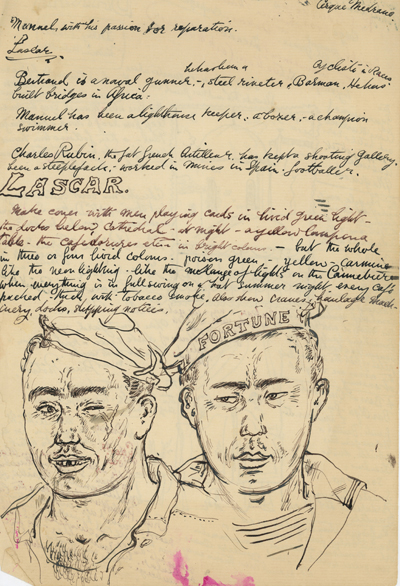 Cirque Medrano.
Manuel, with his passion for reparation.
Lascar.
he has been a cyclist i Russ
Bertrand is a naval gunner -, steel riveter, Barman, He has
built bridges in Africa.
Manuel has been a lighthouse keeper, a boxer, - a champion
swimmer.
Charles Rubin, the fat French Artilleur. has kept a shooting gallery,
been a steeplejack, - worked in mines in Spain, footballer.
LASCAR.
Make cover with men playing cards in livid green light -
the docks below, Cathedral at night - a yellow
table. the cafe doors etc in bright colours. - but the whole
in three or four livid colours. - poison green, - yellow - carmine
like the neon lighting - like the melange of lights on the Cannebiere
when everything is in full swing on a hot summer night, every cafe
packed - thick with tobacco smoke, also show cranes, haulage mach-
inery, docks, shipping notices.
FORTUNE